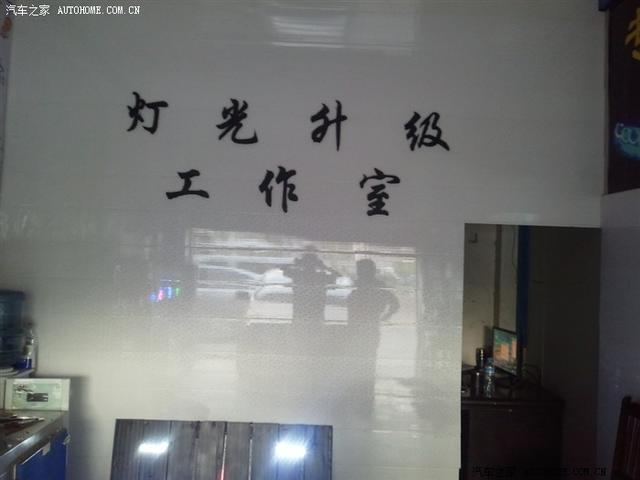 汽车之家 AUTOHOME.COM.CN
灯光升级
工作室
汽车之家 WWW.AUTOHOME.COM.CN